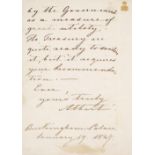 by the Government
as a measure of
great utility.
The Treasury are
quite ready to send
it, but it requires
your recommenda-
tion. —
Ever
yours truly
Albert
Buckingham Palace
19 1847